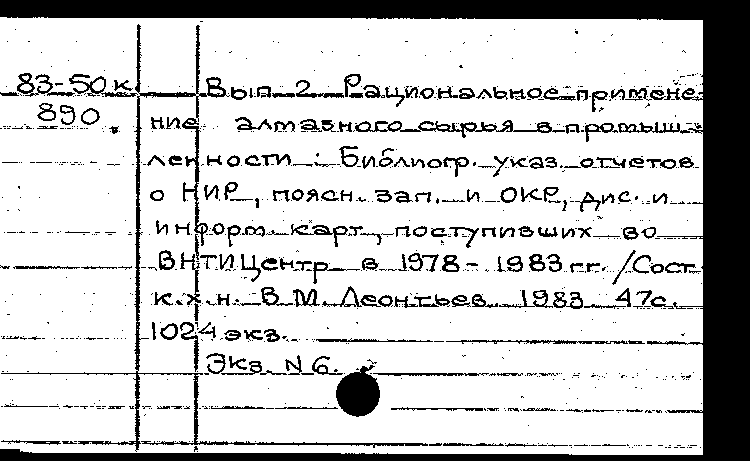 83-50к Вып. 2 Рациональное примене-
890. ние алмазного сырья в промыш-
ленности : Библиогр. указ. отчетов
о НИР, поясн. зап. и ОКР, дис. и
информ. карт, поступивших во
ВНТИЦентр в 1978-1983 гг. /Сост.
к.х.н. В.М. Леонтьев. 1983. 47с.
1024 экз.
Экз. N 6.